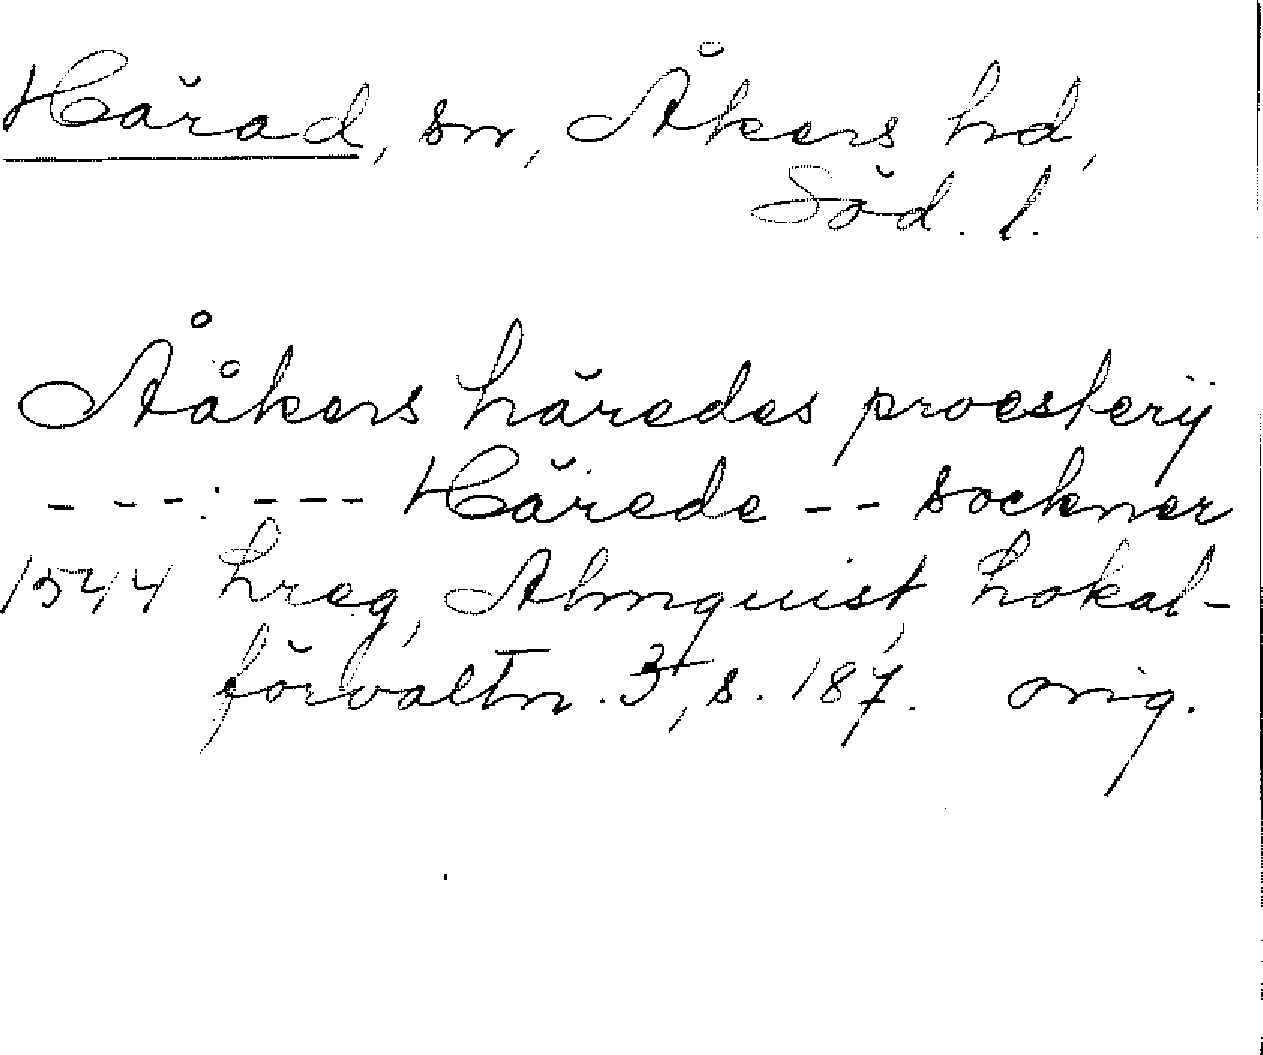 Härad, sn, Åkers hd,
Söd. l.
Ååkers häredes proesterij
- - - : - - - Härede - - sockner
1544 hreg, Almquist, Lokal-
förvaltn. 3, s. 187. orig.